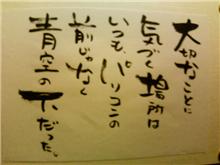 大切なことに
気づく場所は
いつも、パソコンの
前じゃなく
青空の下だった。